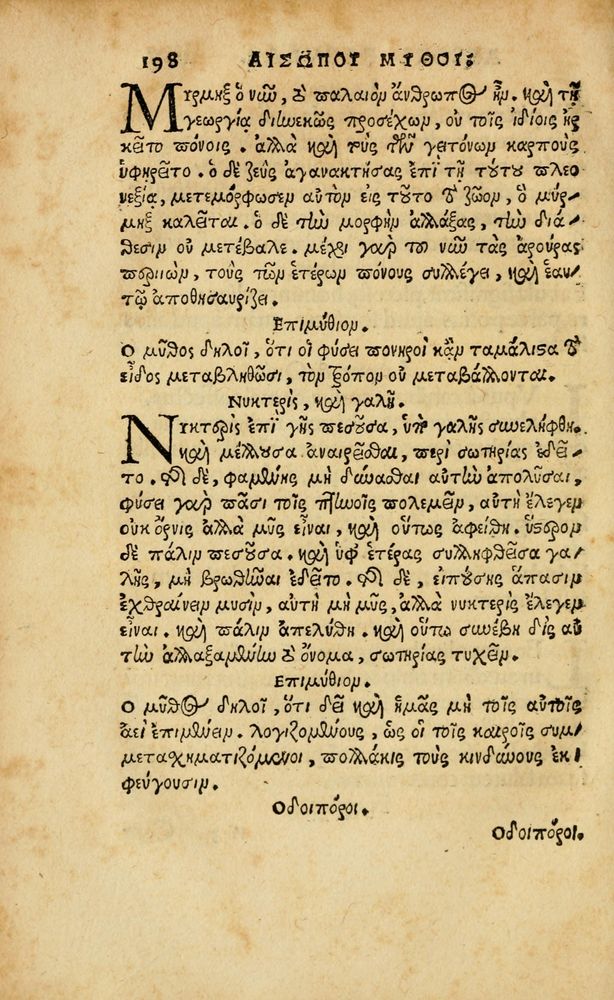 198 ΑΙΣΩΠΟΥ ΜΥΘΟΙ.
Μύρμηξ ὁ νῦν, τὸ παλαιὸν ἄνθρωπος ἦν. καὶ τῇ
γεωργίᾳ διηνεκῶς προσέχων, οὐ τοῖς ἰδίοις ἠρ
κεῖτο πόνοις. ἀλλὰ καὶ τοὺς τῶν γειτόνων καρποὺς
ὑφῃρεῖτο. ὁ δὲ ζεὺς ἀγανακτήσας ἐπὶ τῇ τούτου πλεο
νεξίᾳ, μετεμόρφωσεν αὐτὸν εἰς τοῦτο τὸ ζῶον, ὃ μύρ-
μηξ καλεῖται. ὁ δὲ τὴν μορφὴν ἀλλάξας, τὴν διά-
θεσιν οὐ μετέβαλε. μέχρι γὰρ τοῦ νῦν τὰς ἀρούρας
περιιὼν, τοὺς τῶν ἑτέρων πόνους συλλέγει, καὶ ἑαυ-
τῷ ἀποθησαυρίζει.
Ἐπιμύθιον.
Ὁ μῦθος δηλοῖ, ὅτι οἱ φύσει πονηροὶ κἂν ταμάλιστα τὸ
εἶδος μεταβληθῶσι, τὸν τρόπον οὐ μεταβάλλονται.
Νυκτερὶς, καὶ γαλῆ.
Νυκτερὶς ἐπὶ γῆς πεσοῦσα, ὑπὸ γαλῆς συνελήφθη.
καὶ μέλλουσα ἀναιρεῖσθαι, περὶ σωτηρίας ἐδεῖ-
το. τῆς δὲ, φαμένης μὴ δύνασθαι αὐτὴν ἀπολῦσαι,
φύσει γὰρ πᾶσι τοῖς πτηνοῖς πολεμεῖν, αὐτὴ ἔλεγεν
οὐκ ὄρνις ἀλλὰ μῦς εἶναι, καὶ οὕτως ἀφείθη. ὕστερον
δὲ πάλιν πεσοῦσα. καὶ ὑφ' ἑτέρας συλληφθεῖσα γα-
λῆς, μὴ βρωθῆναι ἐδεῖτο. τῆς δὲ, εἰπούσης ἅπασιν
ἐχθραίνειν μυσὶν, αὐτὴ μὴ μῦς, ἀλλὰ νυκτερὶς ἔλεγεν
εἶναι. καὶ πάλιν ἀπελύθη. καὶ οὕτω συνέβη δὶς αὐ
τὴν ἀλλαξαμένην τὸ ὄνομα, σωτηρίας τυχεῖν.
Ἐπιμύθιον.
Ὁ μῦθος δηλοῖ, ὅτι δεῖ καὶ ἡμᾶς μὴ τοῖς αὐτοῖς
ἀεὶ ἐπιμένειν. λογιζομένους, ὡς οἱ τοῖς καιροῖς συμ-
μετασχηματιζόμενοι, πολλάκις τοὺς κινδύνους ἐκ-
φεύγουσιν.
Ὁδοιπόροι.
Ὁδοιπόροι.